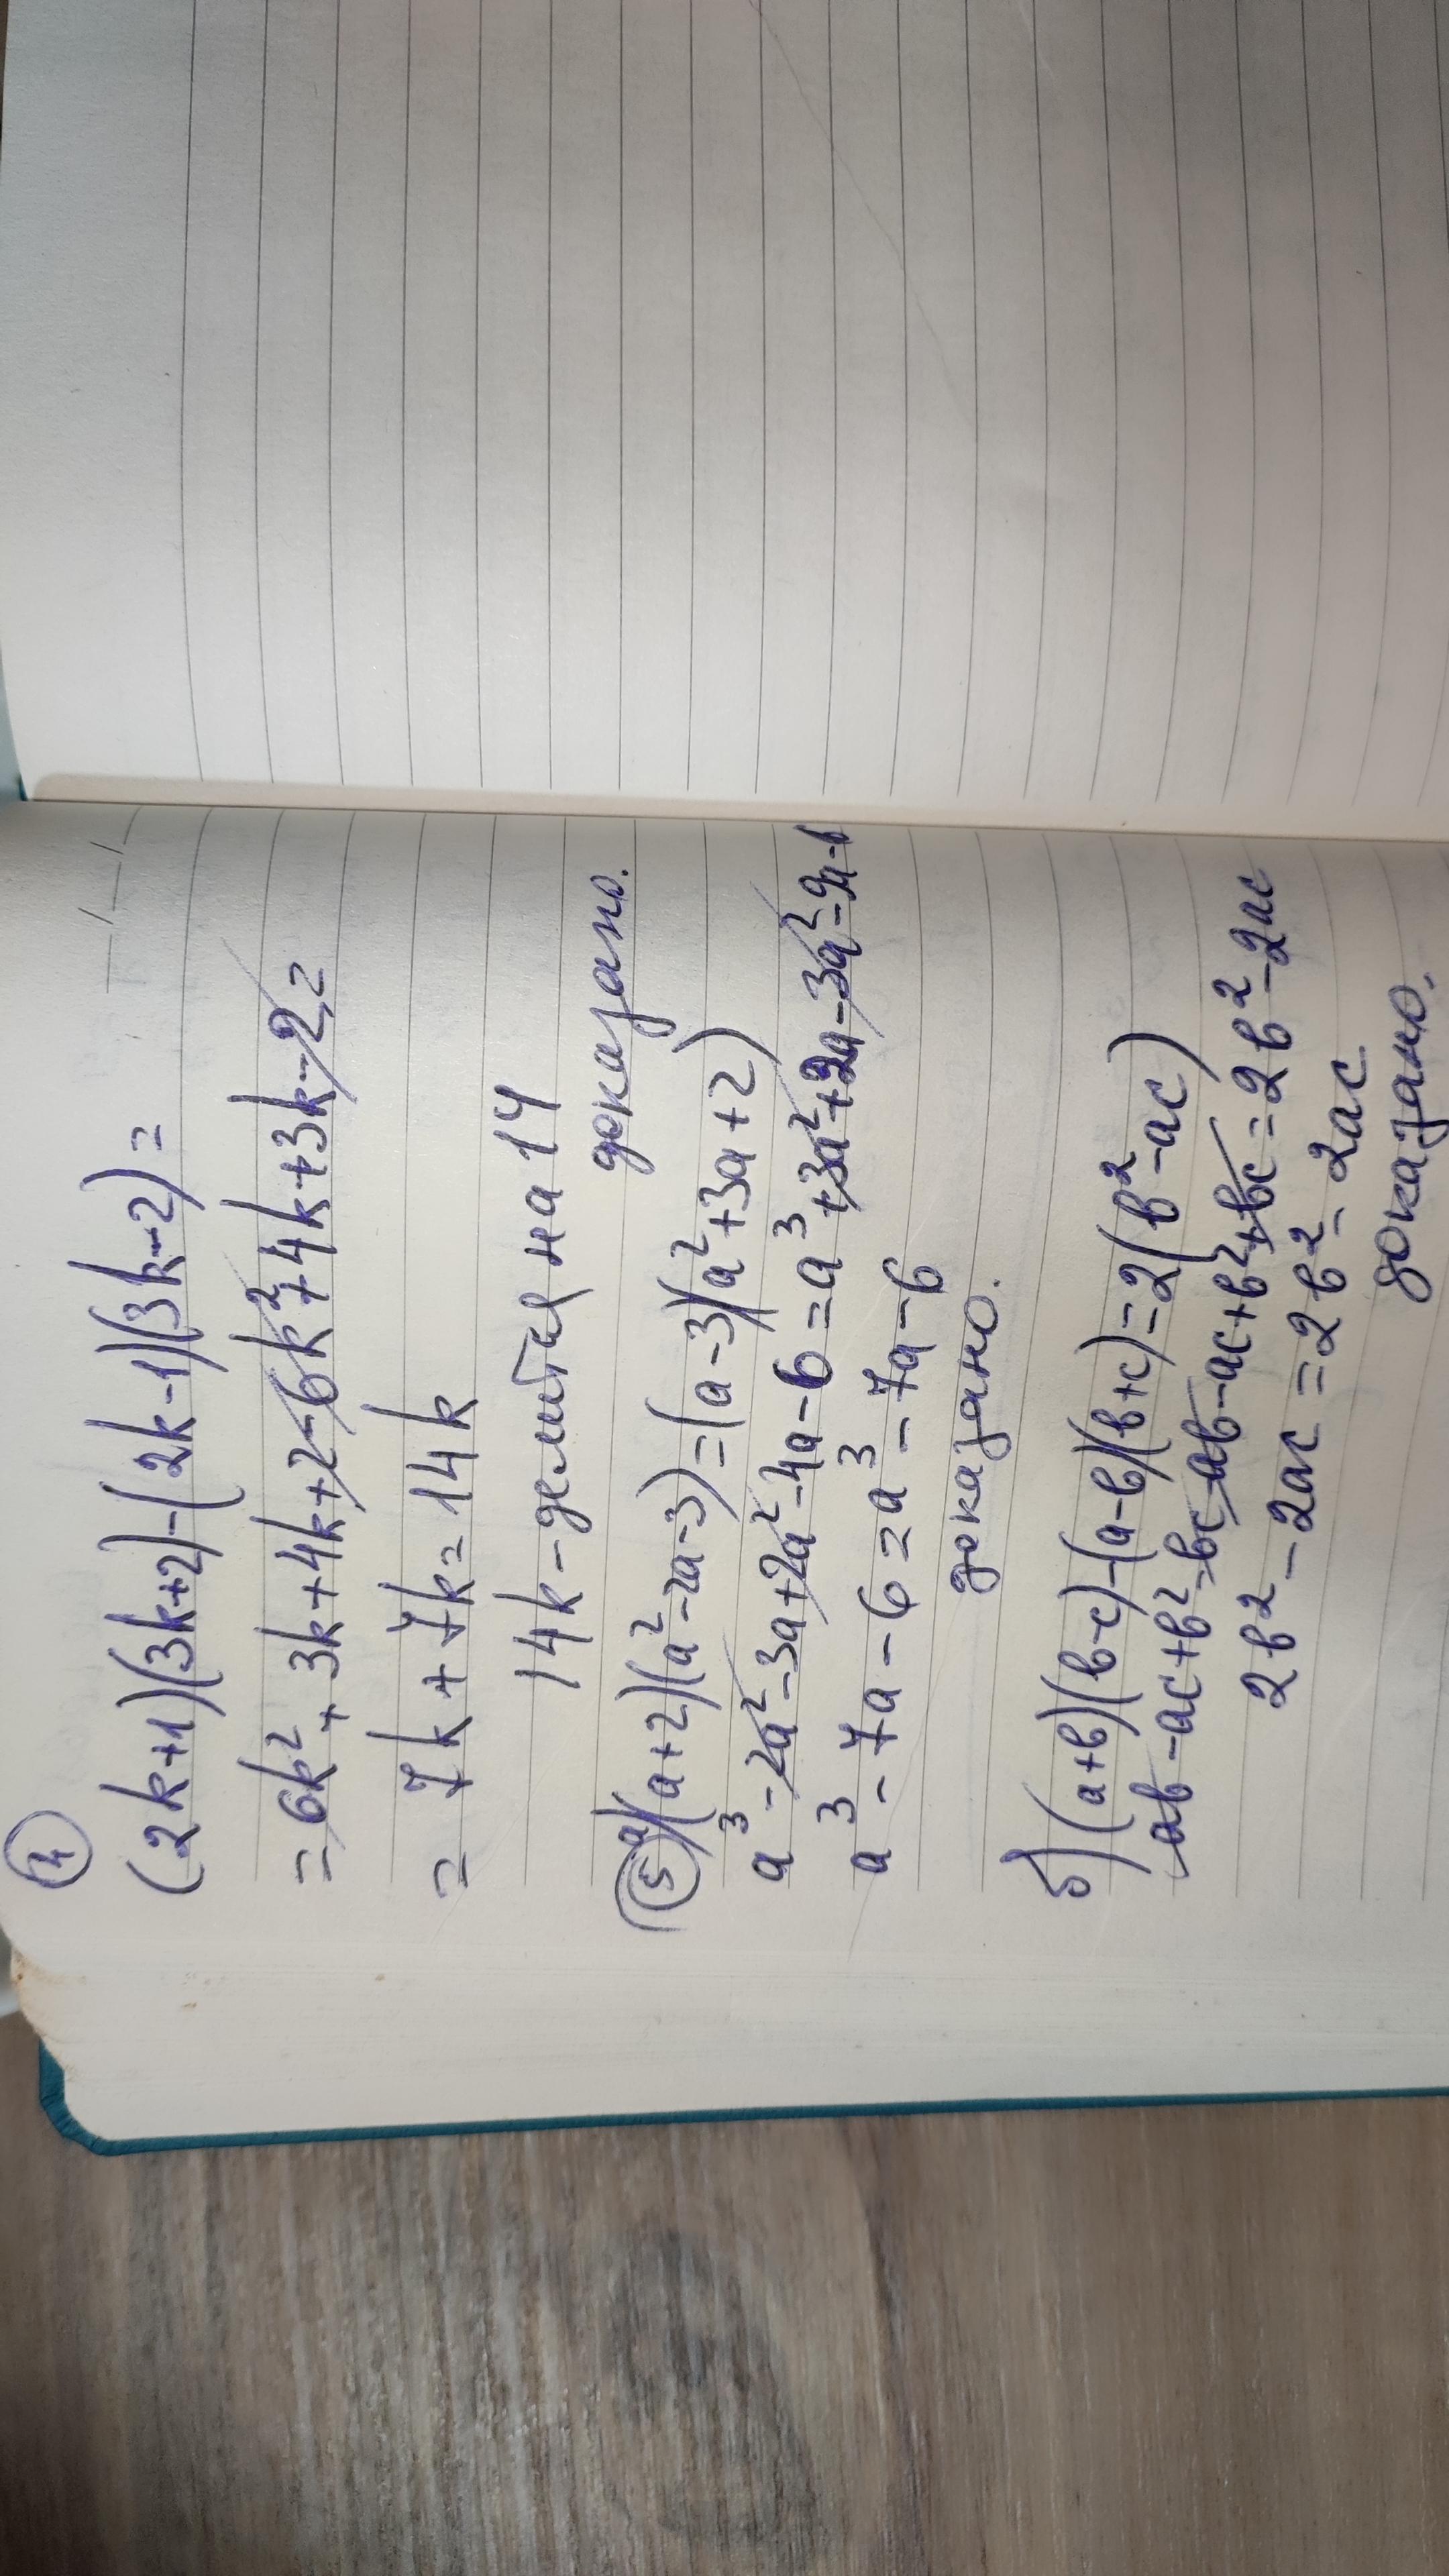 4
(2k+1)(3k+2)-(2k-1)(3k-2)=
=6k²+3k+4k+2-6k²+4k+3k-2=
= 7k+7k=14k
14k - делится на 14
доказано.
5 а) (a+2)(a²-2a-3)=(a-3)(a²+3a+2)
a³-2a²-3a+2a²-4a-6=a³+3a²+2a-3a²-9a-6
a³-7a-6=a³-7a-6
доказано.
б) (a+b)(b-c)-(a-b)(b+c)=2(b²-ac)
ab-ac+b²-bc-ab-ac+b²+bc=2b²-2ac
2b²-2ac=2b²-2ac
доказано.